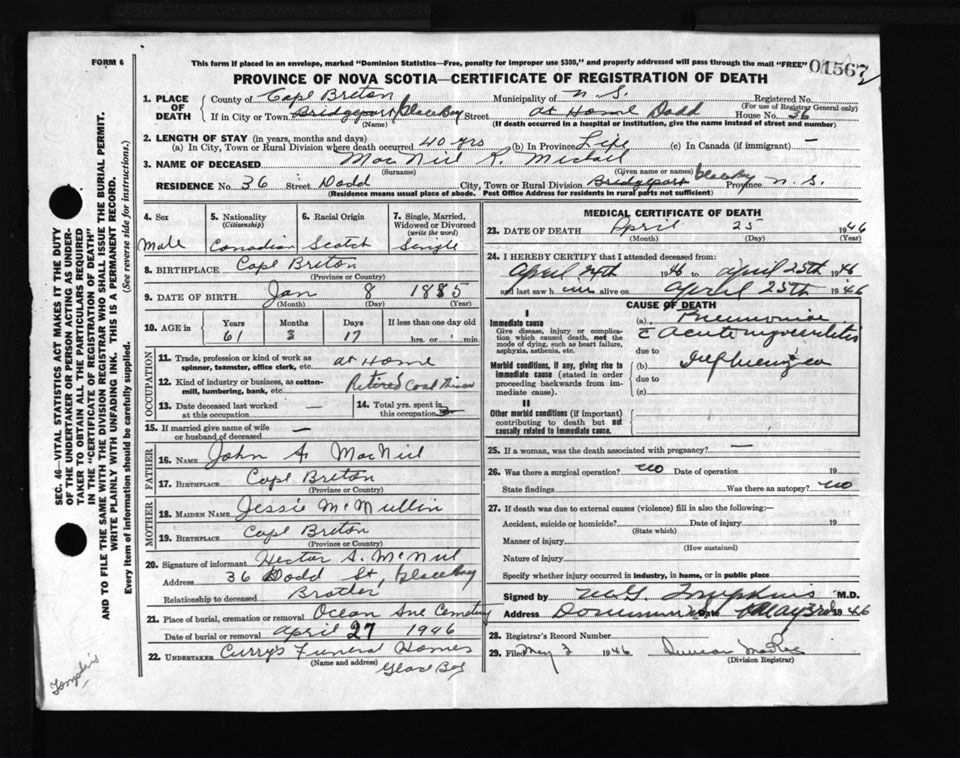 FORM 6
This form if placed in an envelope, marked "Dominion Statistics—Free, penalty for improper use $300," and properly addressed will pass through the mail "FREE"
01567
PROVINCE OF NOVA SCOTIA—CERTIFICATE OF REGISTRATION OF DEATH
1. PLACE OF DEATH
County of Cape Breton Municipality of N. S. Registered No.
(For use of Registrar General only)
If in City or Town Bridgeport Glace Bay Street at Home Dodd House No. 36
(Name) (If death occurred in a hospital or institution, give the name instead of street and number)
2. LENGTH OF STAY (in years, months and days)
(a) In City, Town or Rural Division where death occurred 40 yrs (b) In Province Life (c) In Canada (if immigrant) —
3. NAME OF DECEASED MacNeil R. Michael
(Surname) (Given name or names)
RESIDENCE No. 36 Street Dodd City, Town or Rural Division Bridgeport Glace Bay Province N. S.
(Residence means usual place of abode. Post Office Address for residents in rural parts not sufficient)
4. Sex
Male
5. Nationality
(Citizenship)
Canadian
6. Racial Origin
Scotch
7. Single, Married, Widowed or Divorced
(write the word)
Single
8. BIRTHPLACE Cape Breton
(Province or Country)
9. DATE OF BIRTH Jan 8 1885
(Month) (Day) (Year)
10. AGE in
Years Months Days If less than one day old
61 3 17 hrs. or min.
OCCUPATION
11. Trade, profession or kind of work as spinner, teamster, office clerk, etc. at Home
12. Kind of industry or business, as cotton-mill, lumbering, bank, etc. Retired Coal Miner
13. Date deceased last worked at this occupation —
14. Total yrs. spent in this occupation
15. If married give name of wife or husband of deceased —
FATHER
16. NAME John A. MacNeil
17. BIRTHPLACE Cape Breton
(Province or Country)
MOTHER
18. MAIDEN NAME Jessie McMullin
19. BIRTHPLACE Cape Breton
(Province or Country)
20. Signature of informant Hector A. McNeil
Address 36 Dodd St, Glace Bay
Relationship to deceased Brother
21. Place of burial, cremation or removal Ocean Ave Cemetery
Date of burial or removal April 27 1946
22. UNDERTAKER Curry's Funeral Homes
(Name and address)
Glace Bay
MEDICAL CERTIFICATE OF DEATH
23. DATE OF DEATH April 25 1946
(Month) (Day) (Year)
24. I HEREBY CERTIFY that I attended deceased from:
April 24th 1946 to April 25th 1946
and last saw him alive on April 25th 1946
CAUSE OF DEATH
I
Immediate cause
Give disease, injury or complication which caused death, not the mode of dying, such as heart failure, asphyxia, asthenia, etc.
(a) Pneumonia
c̄ Acute myocarditis
due to
Morbid conditions, if any, giving rise to immediate cause (stated in order proceeding backwards from immediate cause).
(b) Influenza
due to
(c)
II
Other morbid conditions (if important) contributing to death but not causally related to immediate cause.
25. If a woman, was the death associated with pregnancy? —
26. Was there a surgical operation? no Date of operation 19
State findings Was there an autopsy? no
27. If death was due to external causes (violence) fill in also the following:—
Accident, suicide or homicide? Date of injury 19
(State which)
Manner of injury
(How sustained)
Nature of injury
Specify whether injury occurred in industry, in home, or in public place
Signed by M. G. Tompkins M.D.
Address Dominion Date May 3rd 1946
28. Registrar's Record Number
29. Filed May 3 1946 Duncan MacRae
(Division Registrar)
SEC. 46—VITAL STATISTICS ACT MAKES IT THE DUTY OF THE UNDERTAKER OR PERSON ACTING AS UNDERTAKER TO OBTAIN ALL THE PARTICULARS REQUIRED IN THE "CERTIFICATE OF REGISTRATION OF DEATH" AND TO FILE THE SAME WITH THE DIVISION REGISTRAR WHO SHALL ISSUE THE BURIAL PERMIT.
WRITE PLAINLY WITH UNFADING INK. THIS IS A PERMANENT RECORD.
Every item of information should be carefully supplied. (See reverse side for instructions.)
Tompkins